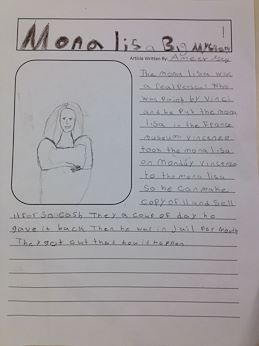 Mona lisa Big Mystery!
Article Written By: Ameer
The mona lisa was
a real person! Who
was paint by Vinci
and he put the mona
lisa in the France
museum vincenzo
took the mona lisa
on Monday vincenzo
to the mona lisa
So he can make
copy of it and sell
it for so cash They a coup of day he
gave it back Then he was in jail for month
They got out that how it happen